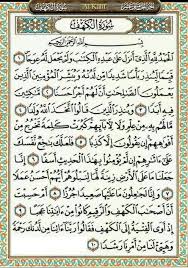 الجزء الخامس عشر
Al Kahf
سورة الكهف
سُورَةُ الكَهْفِ
بِسْمِ اللَّهِ الرَّحْمَٰنِ الرَّحِيمِ
ٱلْحَمْدُ لِلَّهِ ٱلَّذِىٓ أَنزَلَ عَلَىٰ عَبْدِهِ ٱلْكِتَٰبَ وَلَمْ يَجْعَل لَّهُۥ عِوَجَا ۜ ١
قَيِّمًا لِّيُنذِرَ بَأْسًا شَدِيدًا مِّن لَّدُنْهُ وَيُبَشِّرَ ٱلْمُؤْمِنِينَ ٱلَّذِينَ
يَعْمَلُونَ ٱلصَّٰلِحَٰتِ أَنَّ لَهُمْ أَجْرًا حَسَنًا ٢ مَّٰكِثِينَ
فِيهِ أَبَدًا ٣ وَيُنذِرَ ٱلَّذِينَ قَالُوا۟ ٱتَّخَذَ ٱللَّهُ وَلَدًا ٤
مَّا لَهُم بِهِۦ مِنْ عِلْمٍ وَلَا لِـَٔابَآئِهِمْ كَبُرَتْ كَلِمَةً تَخْرُجُ مِنْ
أَفْوَٰهِهِمْ إِن يَقُولُونَ إِلَّا كَذِبًا ٥ فَلَعَلَّكَ بَٰخِعٌ نَّفْسَكَ عَلَىٰٓ
ءَاثَٰرِهِمْ إِن لَّمْ يُؤْمِنُوا۟ بِهَٰذَا ٱلْحَدِيثِ أَسَفًا ٦ إِنَّا جَعَلْنَا
مَا عَلَى ٱلْأَرْضِ زِينَةً لَّهَا لِنَبْلُوَهُمْ أَيُّهُمْ أَحْسَنُ عَمَلًا ٧
وَإِنَّا لَجَٰعِلُونَ مَا عَلَيْهَا صَعِيدًا جُرُزًا ٨ أَمْ حَسِبْتَ
أَنَّ أَصْحَٰبَ ٱلْكَهْفِ وَٱلرَّقِيمِ كَانُوا۟ مِنْ ءَايَٰتِنَا عَجَبًا ٩
إِذْ أَوَى ٱلْفِتْيَةُ إِلَى ٱلْكَهْفِ فَقَالُوا۟ رَبَّنَآ ءَاتِنَا مِن لَّدُنكَ رَحْمَةً
وَهَيِّئْ لَنَا مِنْ أَمْرِنَا رَشَدًا ١٠